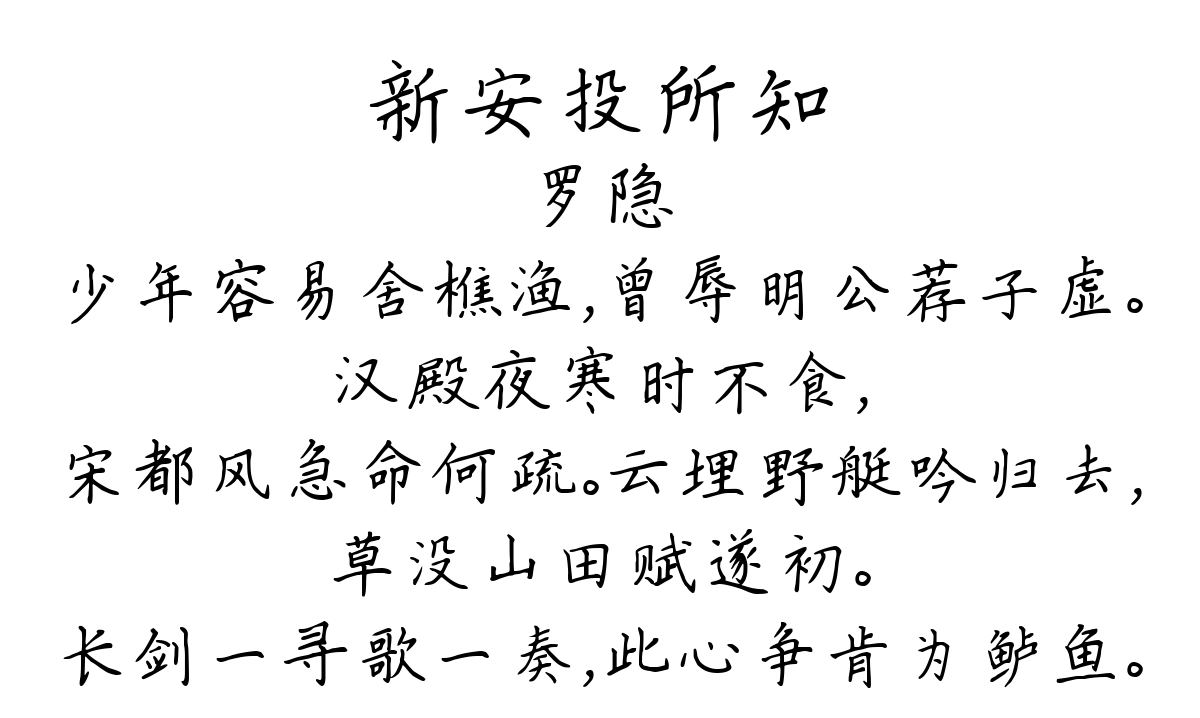 新安投所知
罗隐
少年容易舍樵渔,曾辱明公荐子虚。
汉殿夜寒时不食,
宋都风急命何疏。云埋野艇吟归去,
草没山田赋遂初。
长剑一寻歌一奏,此心争肯为鲈鱼。